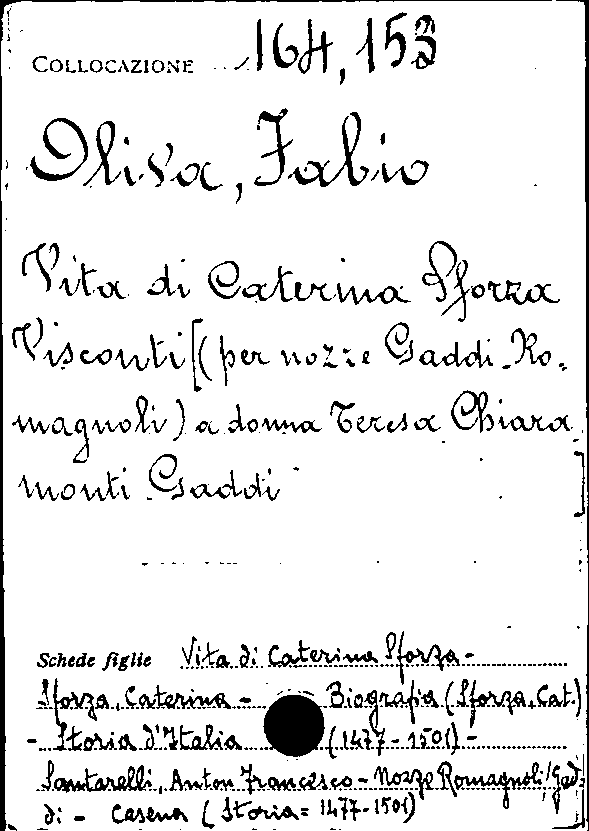 COLLOCAZIONE 164,153
Oliva, Fabio
Vita di Caterina Sforza
Visconti [(per nozze Gaddi-Ro-
magnoli) a donna Teresa Chiara
monti Gaddi ]
Schede figlie Vita di Caterina Sforza -
Sforza, Caterina - Biografia (Sforza, Cat.)
- Storia d'Italia (1477-1501) -
Santarelli, Anton Francesco - Nozze Romagnoli/Gad-
di - Cesena (Storia = 1477-1501)